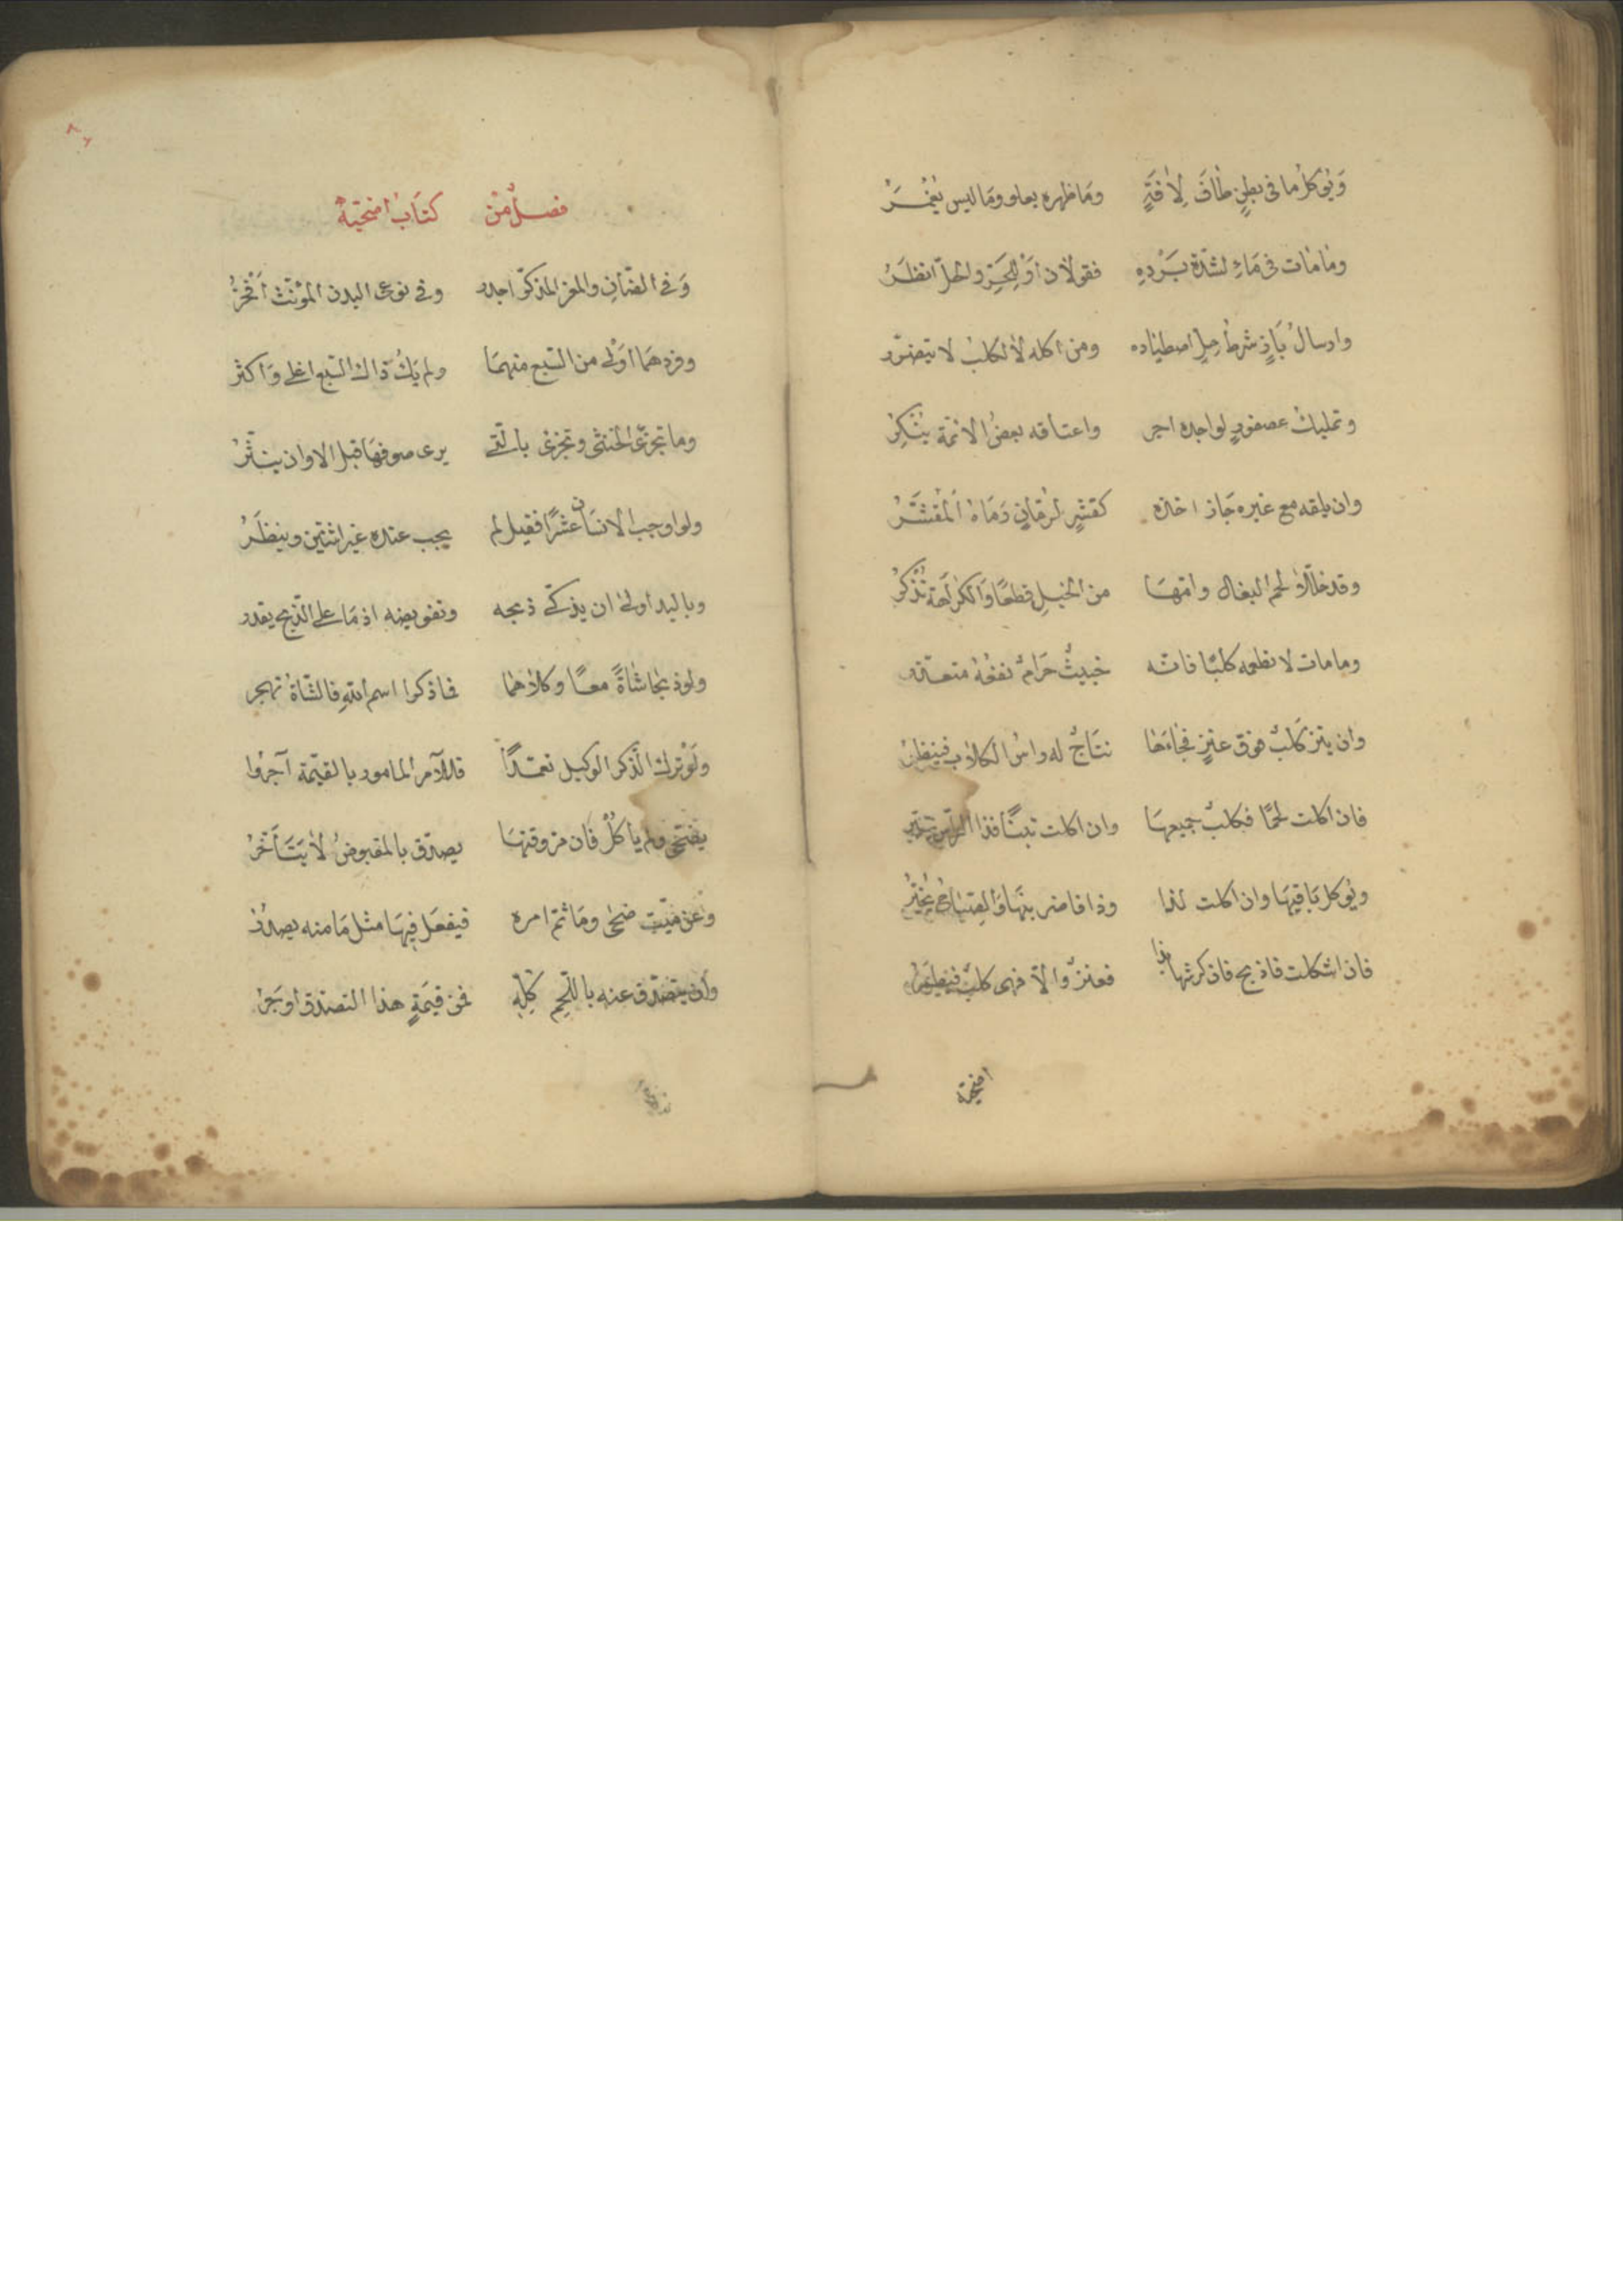 ويؤكل ما في بطن طاف لآفة وما ظهره يعلو وما ليس يغمر
وما مات في ماء لشدة برده فقولان أو للحر والحل أنظر
وارسال باز شرط حل اصطياده ومن اكله لا الكلب لا يتضرر
وتمليك عصفور لواجده اجز واعتاقه بعض الائمة ينكر
وان يلقه مع غيره جاز اخذه كقشر لرمان رماه المقشر
وقد حللوا لحم البغال وامها من الخيل قطعا والكراهة تذكر
وما مات لا تطعمه كلبا فانه خبيث حرام نفعه متعذر
وان ينز كلب فوق عنز فجاءها نتاج له راس الكلاب فينظر
فان اكلت لحما فكلب جميعها وان اكلت تبنا فذا الراس يبتر
ويؤكل باقيها وان اكلت لذا وذا فاضربنها والصياح يخبر
فان اشكلت فاذبح فان كرشها بدا فعنز والا فهي كلب فيطمر
اضحية
فصل من كتاب اضحية
وفي الضان والمعز المذكر اجدر وفي نوعي البدن المؤنث افخر
وفردهما اولى من السبع منهما ولم يك ذاك السبع اغلى واكثر
وما تجزئ الخنثى وتجزئ بالتي يرى صوفها قبل الاوان ينثر
ولو اوجب الانسان عشرا فقيل لم يجب عنده غير اثنتين وينظر
وباليد اولى ان يذكى ذبحه وتفويضه اذ ما على الذبح يقدر
ولو ذبحا شاة معا وكلاهما فاذكرا اسم الله فالشاة تهجر
ولو ترك الذكر الوكيل تعمدا فللآمر المامور بالقيمة آجروا
يضحى ولم ياكل فان مر وقتها يصدق بالمقبوض لا يتأخر
وعن ميت ضحى وما ثم امره فيفعل فيها مثل ما منه يصدر
وان يتصدق عنه باللحم كله فمن قيمة هذا التصدق اوجر